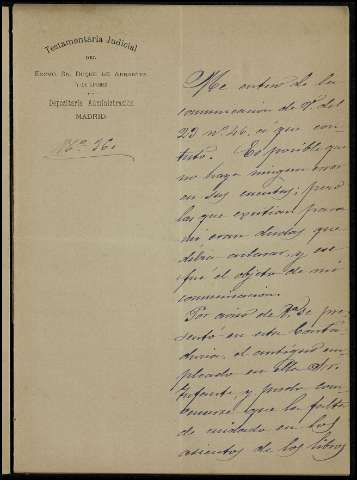 Testamentaría Judicial
DEL
EXCMO. SR. DUQUE DE ABRANTES
Y DE LINARES
Depositaría Administración
MADRID
Nº 36.
Me entero de la
comunicacion de V. del
23 nº 46, á que con-
testo. Es posible que
no haya ningun error
en sus cuentas; pero
las que existian para
mí eran dudas que
debia aclarar, y ese
fué el objeto de mi
comunicacion.
Por aviso de V. se pre-
sentó en esta Conta-
duria, el antiguo em-
pleado en ella Sr.
Infante, y pudo con-
vencerse que la falta
de cuidado en los
asientos de los libros